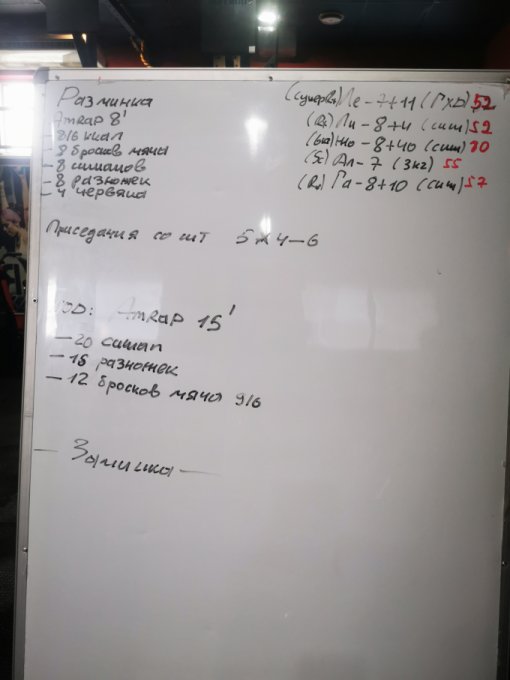 Разминка
AmRap 8'
8/6 ккал
- 8 бросков мяча
- 8 ситапов
- 8 разножек
- 4 червяка
Приседания со шт 5 х 4-6
WOD: AmRap 15'
- 20 ситап
- 16 разножек
- 12 бросков мяча 9/6
- Заминка -
Ле - 7+11 (ГХД) 52
(Rx) Ли - 8+4 (сит) 52
Но - 8+40 (сит) 80
(Sc) Ал - 7 (3кг) 55
(Rx) Га - 8+10 (сит) 57